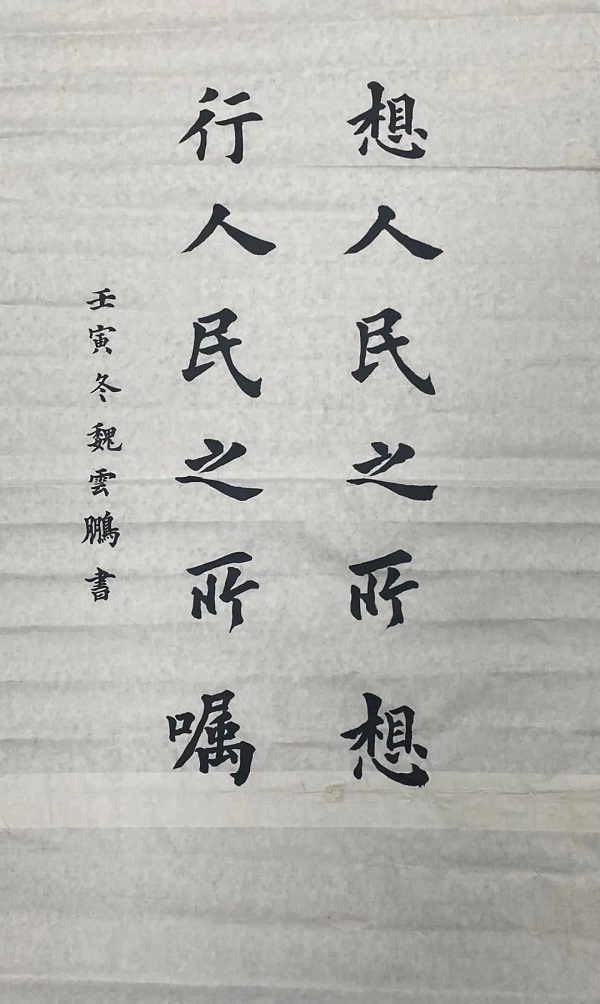 想人民之所想
行人民之所嘱
壬寅冬魏雲鵬書